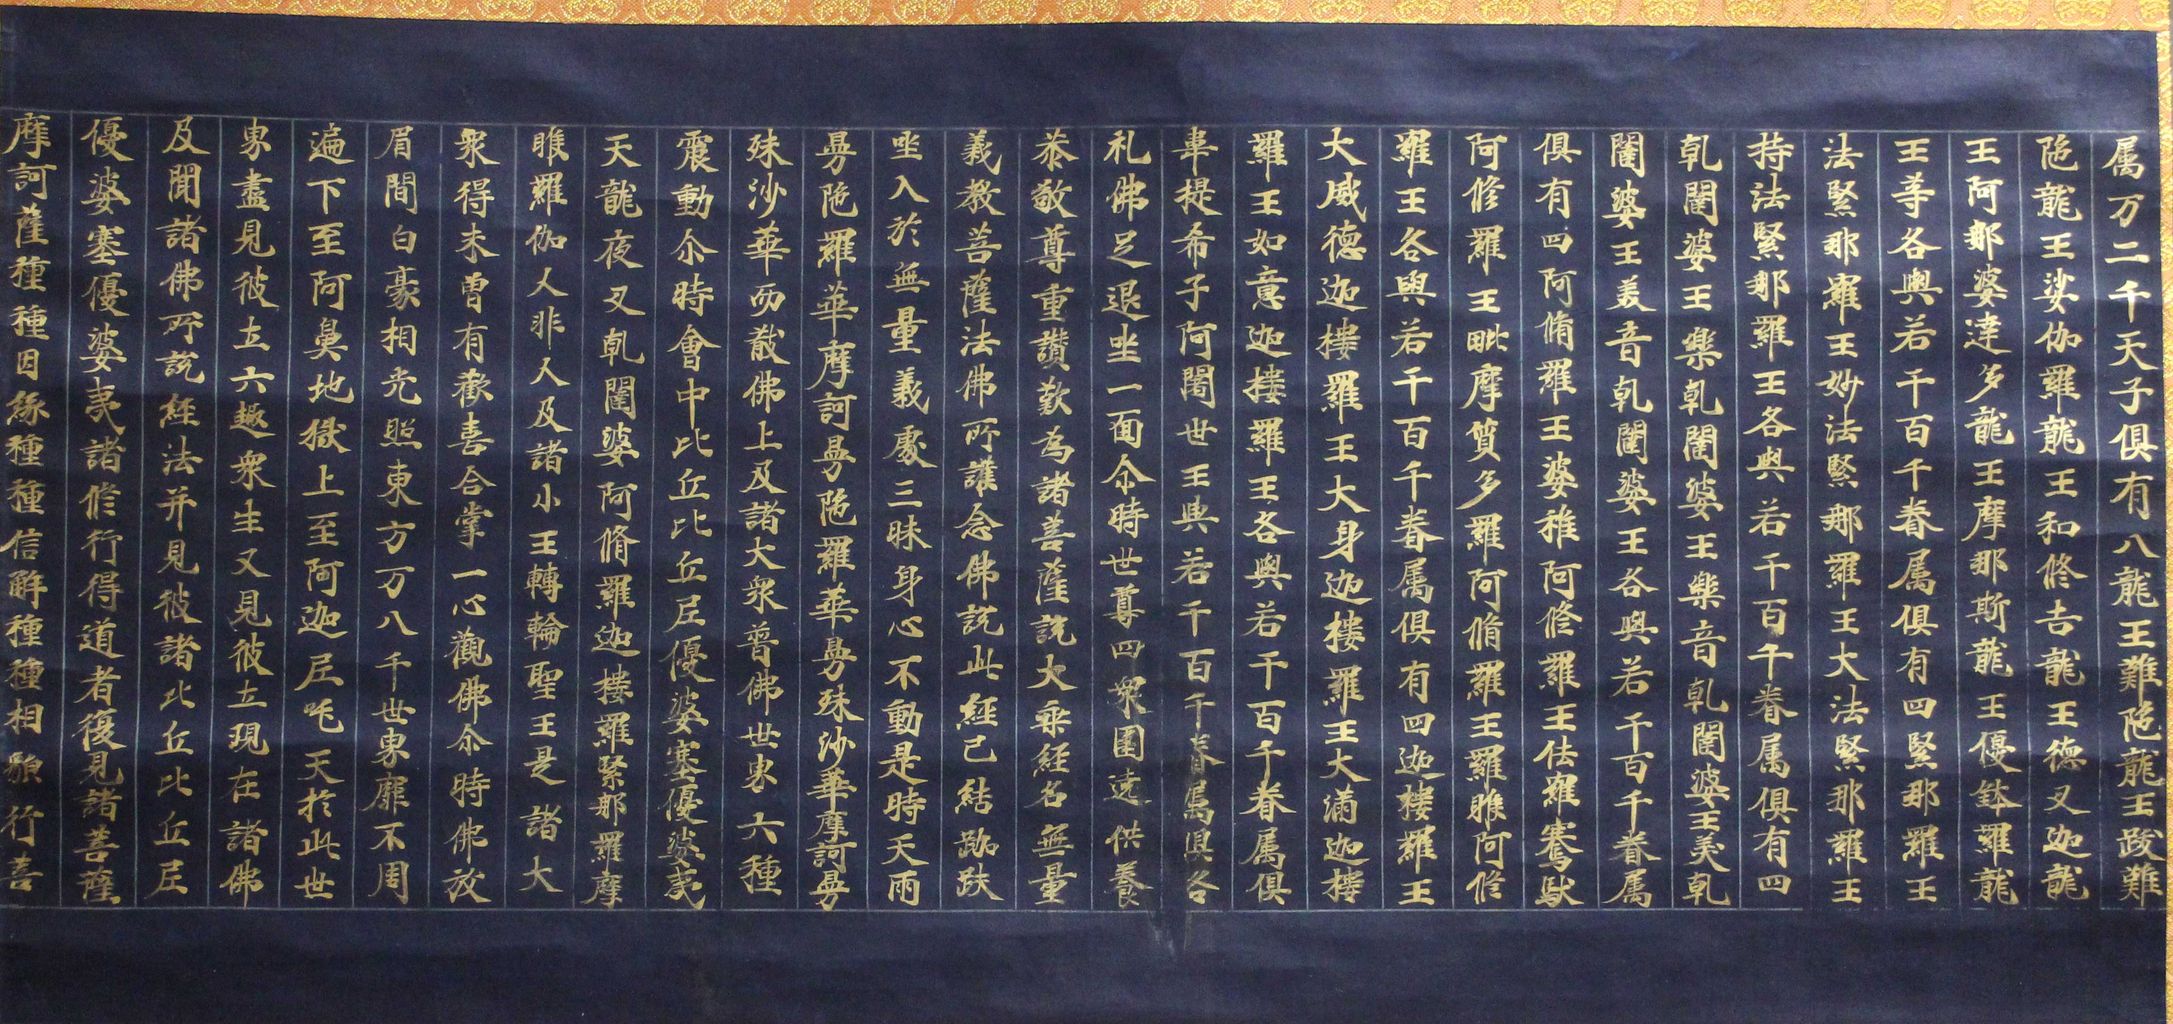 属万二千天子俱有八龍王難陁龍王跋難
陁龍王娑伽羅龍王和修吉龍王德叉迦龍
王阿那婆達多龍王摩那斯龍王優鉢羅龍
王等各與若千百千眷属俱有四緊那羅王
法緊那羅王妙法緊那羅王大法緊那羅王
持法緊那羅王各與若千百千眷属俱有四
乹闥婆王樂乹闥婆王樂音乹闥婆王美乹
闥婆王美音乹闥婆王各與若千百千眷属
俱有四阿脩羅王婆稚阿修羅王佉羅騫馱
阿修羅王毗摩質多羅阿脩羅王羅睺阿修
羅王各與若千百千眷属俱有四迦樓羅王
大威德迦樓羅王大身迦樓羅王大滿迦樓
羅王如意迦樓羅王各與若干百千眷属俱
韋提希子阿闍世王與若千百千眷属俱各
礼佛足退坐一面尒時世尊四衆圍遶供養
恭敬尊重讚歎為諸菩薩說大乘經名無量
義教菩薩法佛所護念佛說此經已結跏趺
坐入於無量義處三昧身心不動是時天雨
曼陁羅華摩訶曼陁羅華曼殊沙華摩訶曼
殊沙華而散佛上及諸大衆普佛世界六種
震動尒時會中比丘比丘尼優婆塞優婆夷
天龍夜叉乹闥婆阿脩羅迦樓羅緊那羅摩
睺羅伽人非人及諸小王轉輪聖王是諸大
衆得未曾有歡喜合掌一心觀佛尒時佛放
眉間白豪相光照東方万八千世界靡不周
遍下至阿鼻地獄上至阿迦尼吒天於此世
界盡見彼土六趣衆生又見彼土現在諸佛
及聞諸佛所說經法并見彼諸比丘比丘尼
優婆塞優婆夷諸修行得道者復見諸菩薩
摩訶薩種種因緣種種信解種種相貌行菩